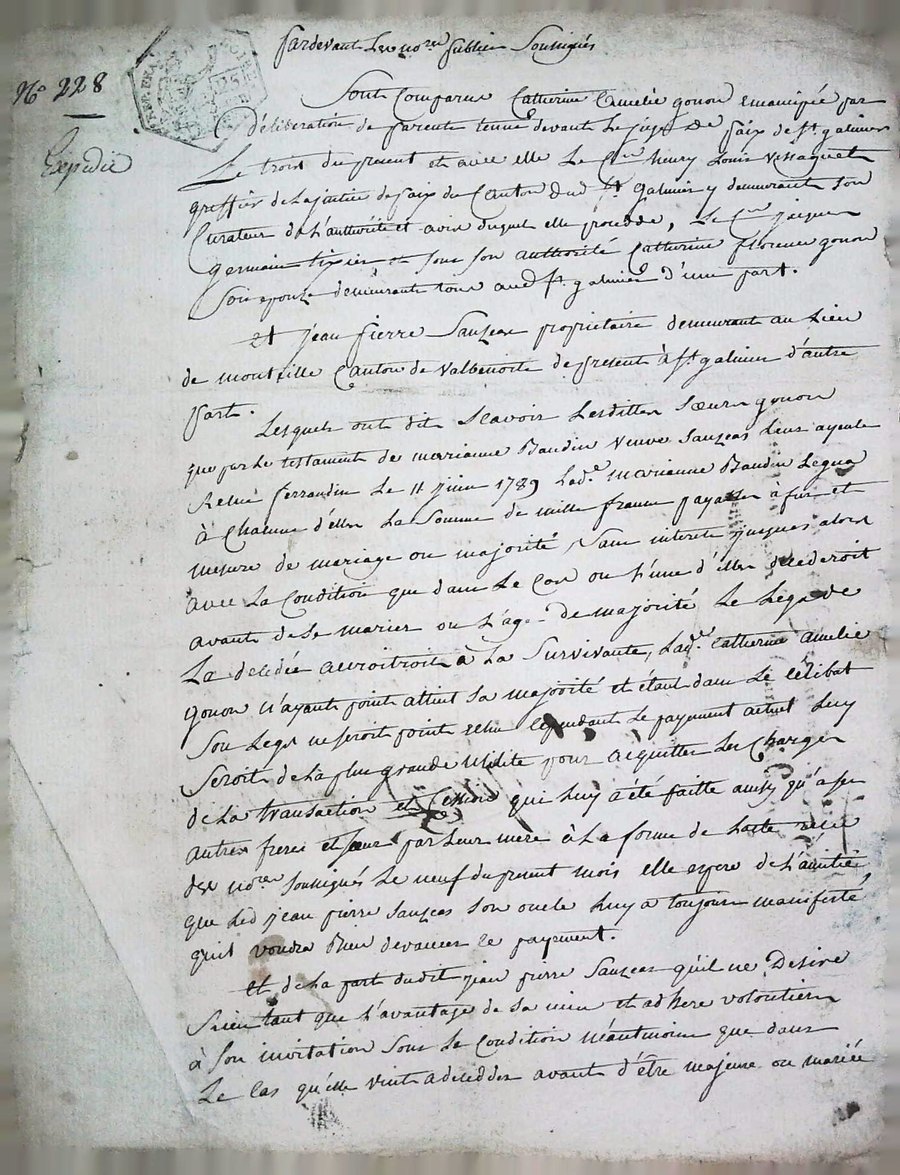 Pardevant Les no.res Publics Soussignés
N.o 228
Expedié
Sont Comparus Catherine Amelie gonon emancipée par
déliberation de parents tenue devant Le juge de paix de S.t galmier
Le trois du present et avec elle Le C.en henry Louis
greffier de La justice de paix du Canton dud S.t galmier y demeurant son
Curateur de L'authorité et avis duquel elle procède, Le C.en jacques
germain tixier et sous son authorité Catherine florence gonon
Son epouse demeurants tous aud S.t galmier d'une part.
et jean pierre Sauzeas proprietaire demeurant au Lieu
de Canton de Valbenoite de present à S.t galmier d'autre
part.
Lesquels ont dit Scavoir Lesdittes Sœurs gonon
que par Le testament de marianne Baudin Veuve Sauzeas Leur ayeule
Reçu ferrandin Le 11 juin 1789 Lad.e marianne Baudin Legua
à Chacune d'elles La Somme de mille francs payables à fur et
mesure de mariage ou majorité, Sans interets jusques alors
avec La Condition que dans Le Cas ou L'une d'elles decederoit
avant de Se marier ou L'age de majorité Le Legs de
La decedée accroitroit à La Survivante, Lad.e Catherine amelie
gonon n'ayant point atteint Sa majorité et etant dans Le Célibat
Son Legs ne Seroit point echu Cependant Le payement actuel Luy
Seroit de La plus grande utilité pour acquitter Les Charges
de La transaction et Cession qui Luy a été faitte ainsy qu'a ses
autres freres et Sœur par Leur mere à La forme de L'acte reçu
des no.res Soussignés Le neuf du present mois elle espere de L'amitié
que Led jean pierre Sauzeas Son oncle Luy a toujours manifesté,
qu'il voudra Bien devancer ce payement.
et de La part dudit jean pierre Sauzeas qu'il ne Desire
rien tant que L'avantage de Sa niece et adhere volontiers
à Son invitation Sous La Condition néantmoins que dans
Le Cas qu'elle vint a decedder avant d'être majeure ou mariée